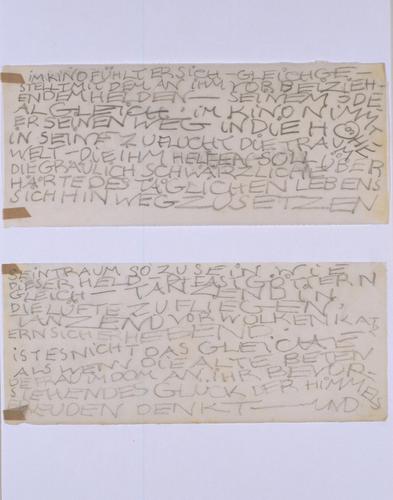 IM KINO FÜHLT ER SICH — GLEICHGE-
STELLT MIT DEM AN IHM VORBEIZIEH-
ENDEM HELDEN — SEINEM IDE
AL GLEICH: IM KINO NIMMT
ER SEINEN WEG IN DIE HÖ
IN SEINE ZUFLUCHT DIE TRAUM
WELT DIE IHM HELFEN SOLL ÜBER
DIE GRÄULICH SCHWÄRZLICHE
HÄRTE DES TÄGLICHEN LEBENS
SICH HINWEGZUSETZEN
SEIN TRAUM SO ZU SEIN WIE
DIESER HELD
GLEICH — TANZEND IN
DIE LÜFTE ZU FLIEGEN,
TANZEND VOR WOLKEN
ERN SICH ERHEBEND
IST ES NICHT DAS GLEICHE
ALS WENN DIE ALTE BETEN
DE FRAU IM DOM AN IHR BEVOR-
STEHENDES GLÜCK DER HIMMELS
FREUDEN DENKT — UND